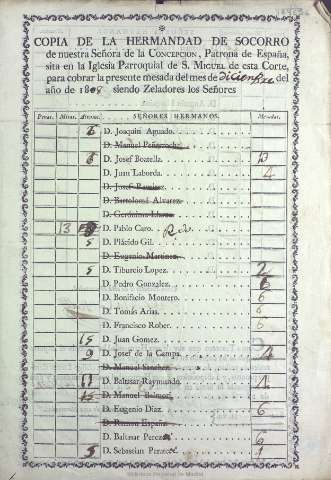 COPIA DE LA HERMANDAD DE SOCORRO
de nuestra Señora de la CONCEPCION, Patrona de España,
sita en la Iglesia Parroquial de S. MIGUEL de esta Corte,
para cobrar la presente mesada del mes de diciembre del
año de 180 siendo Zeladores los Señores
SEÑORES HERMANOS. Mesadas.
6 D. Joaquin Aguado.
D. Manuel
6 D. Josef Boatella.
D. Juan Laborda. 4
D. Josef Ramirez.
D. Bartolomé Alvarez.
D. Gerónimo
13 D. Pablo Caro.
5 D. Plácido Gil.
D. Eugenio Martinez.
5 D. Tiburcio Lopez. 2
D. Pedro Gonzalez. 6
D. Bonificio Montero. 6
D. Tomás Arias. 6
D. Francisco Rober. 6
15 D. Juan Gomez.
9 D. Josef de la Campa. 4
D. Manuel Sanchez.
11 D. Baltasar Raymundo. 4
15 D. Manuel
D. Eugenio Diaz. 6
D. Ramon España.
D. Baltasar Perez 6
5 D. Sebastian 1